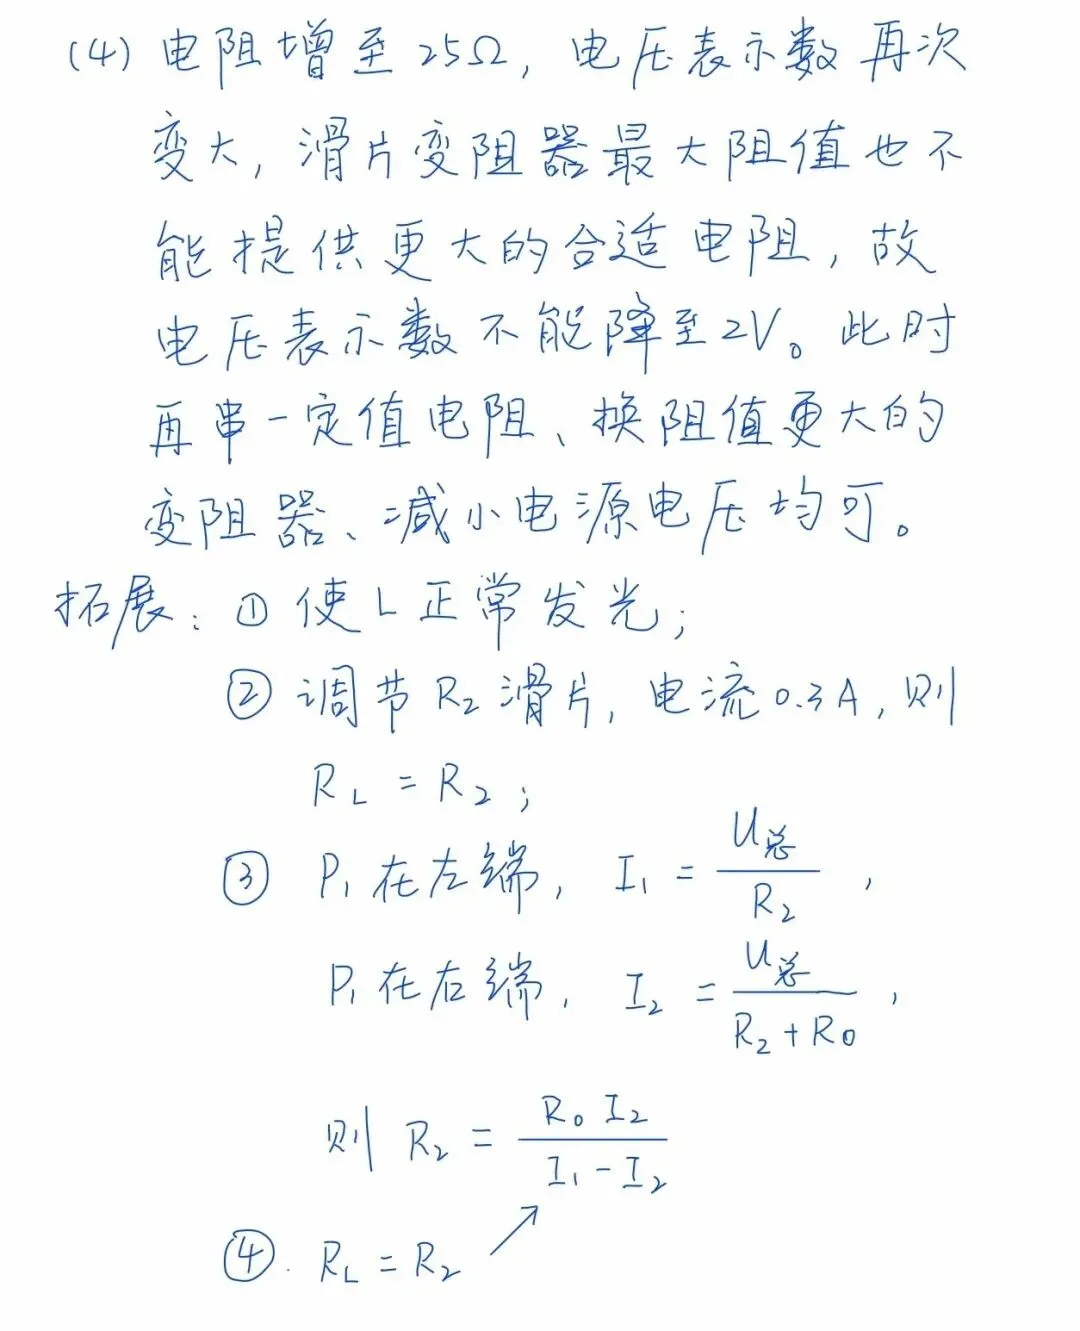 (4) 电阻增至25Ω, 电压表示数再次
变大, 滑片变阻器最大阻值也不
能提供更大的合适电阻, 故
电压表示数不能降至2V。此时
再串一定值电阻、换阻值更大的
变阻器、减小电源电压均可。
拓展: ① 使L正常发光;
② 调节R₂滑片, 电流0.3A, 则
R_L = R₂;
③ P₁在左端, I₁ = U总/R₂,
P₁在右端, I₂ = U总/(R₂+R₀),
则 R₂ = R₀I₂/(I₁-I₂)
④. R_L = R₂ ↗